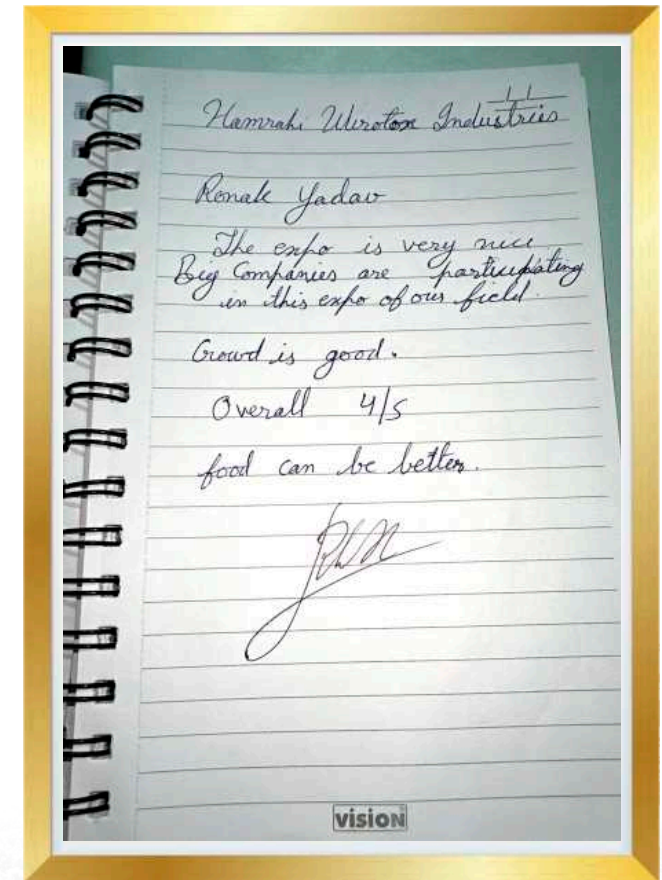 Hamrahi Wirotox Industries
Ronak Yadav
The expo is very nice
Big Companies are participating
in this expo of our field.
Crowd is good.
Overall 4/5
food can be better.
vision